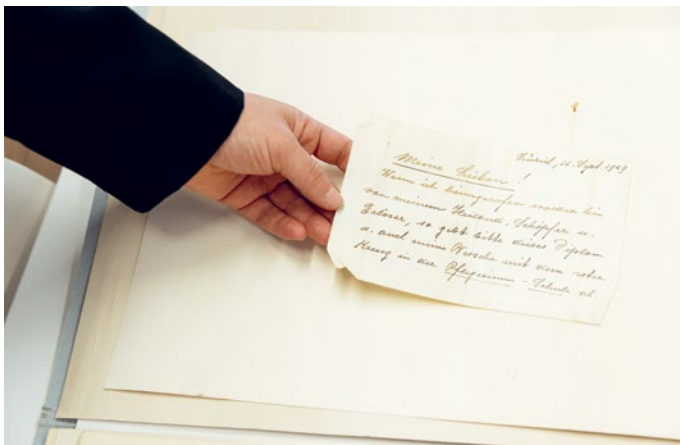 Zürich, 11. Sept. 1949
Meine Lieben!
Wenn ich heimgerufen worden bin
von meinem Heiland, Schöpfer u.
Erlöser, so gebt bitte dieses Diplom
u. auch meine Brosche mit dem roten
Kreuz in der Pflegerinnen-Schule ab